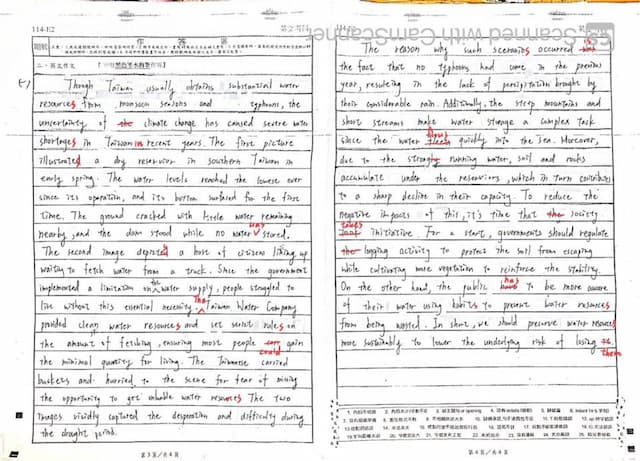 114-E2
第 2 考科
作 答 區
二、英文作文
Though Taiwan usually obtains substantial water
resources from monsoon seasons and typhoons, the
uncertainty of the climate change has caused severe water
shortages in Taiwan in recent years. The first picture
illustrated a dry reservoir in southern Taiwan in
early spring. The water levels reached the lowest ever
since its operation, and its bottom surfaced for the first
time. The ground cracked with little water remaining
nearby, and the dam stood while no water was stored.
The second image depicted a host of citizens lining up
waiting to fetch water from a truck. Since the government
implemented a limitation on the water supply, people struggled to
live without this essential necessity. The Taiwan Water Company
provided clean water resources and set strict rules on
the amount of fetching, ensuring most people can could gain
the minimal quantity for living. The Taiwanese carried
buckets and hurried to the scene for fear of missing
the opportunity to get valuable water resources. The two
images vividly captured the desperation and difficulty during
the drought period.
第 3 頁/共 4 頁
Scanned with CamScanner
The reason why such scenarios occurred was
the fact that no typhoons had come in the previous
year, resulting in the lack of precipitation brought by
their considerable rain. Additionally, the steep mountains and
short streams make water storage a complex task
since the water flows quickly into the sea. Moreover,
due to the strongly running water, soil and rocks
accumulate under the reservoirs, which in turn contributes
to a sharp decline in their capacity. To reduce the
negative impacts of this, it's time that the society
takes initiative. For a start, governments should regulate
the logging activity to protect the soil from escaping
while cultivating more vegetation to reinforce the stability.
On the other hand, the public has to be more aware
of their water using habits to prevent water resources
from being wasted. In short, we should preserve water resources
more sustainably to lower the underlying risk of losing them
第 4 頁/共 4 頁